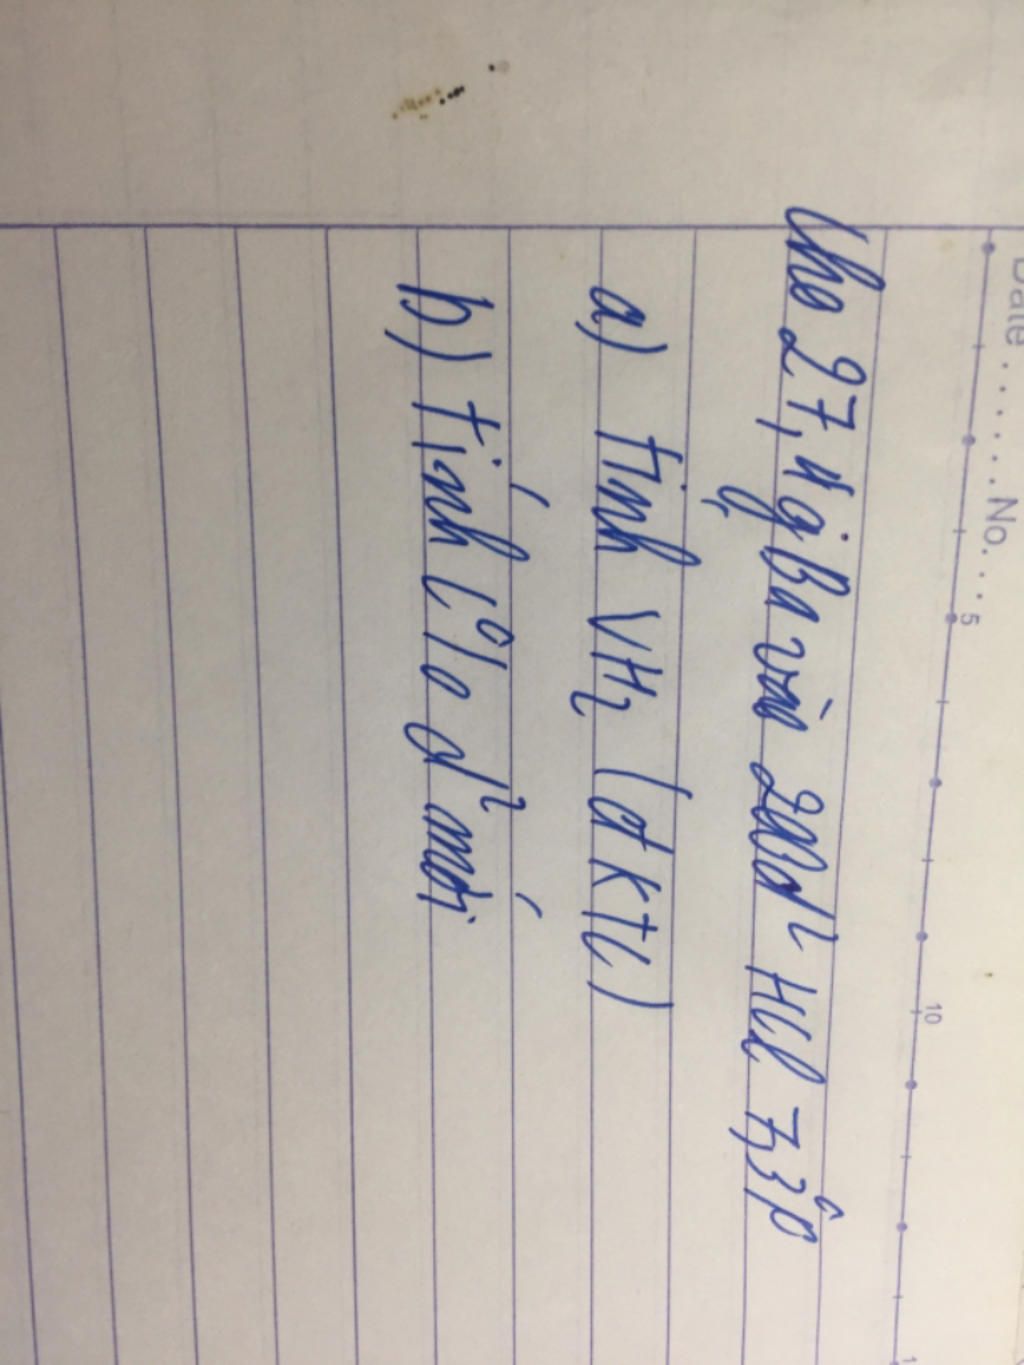 Date . . . . . . . No. . . .
5 10 1
Cho 27,4g Ba vào 200d² HCl 7,3%
a) tính VH₂ (đktc)
b) tính C% d² mới